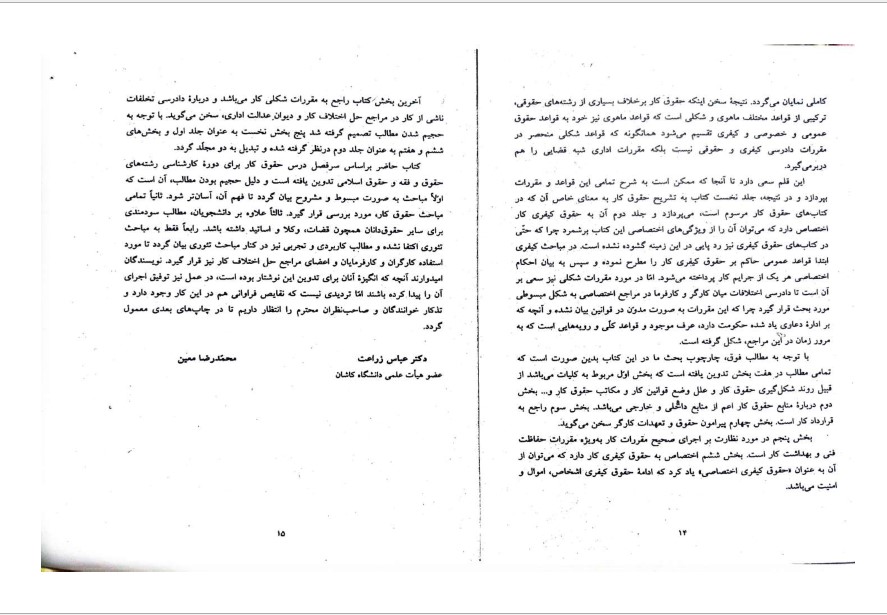 کاملی نمایان می‌گردد. نتیجهٔ سخن اینکه حقوق کار برخلاف بسیاری از رشته‌های حقوقی،
ترکیبی از قواعد مختلف ماهوی و شکلی است که قواعد ماهوی نیز خود به قواعد حقوق
عمومی و خصوصی و کیفری تقسیم می‌شود همانگونه که قواعد شکلی منحصر در
مقررات دادرسی کیفری و حقوقی نیست بلکه مقررات اداری شبه قضایی را هم
دربرمی‌گیرد.
این قلم سعی دارد تا آنجا که ممکن است به شرح تمامی این قواعد و مقررات
بپردازد و در نتیجه، جلد نخست کتاب به تشریح حقوق کار به معنای خاص آن که در
کتاب‌های حقوق کار مرسوم است، می‌پردازد و جلد دوم آن به حقوق کیفری کار
اختصاص دارد که می‌توان آن را از ویژگی‌های اختصاصی این کتاب برشمرد چرا که حتّی
در کتاب‌های حقوق کیفری نیز رد پایی در این زمینه گشوده نشده است. در مباحث کیفری
ابتدا قواعد عمومی حاکم بر حقوق کیفری کار را مطرح نموده و سپس به بیان احکام
اختصاصی هر یک از جرایم کار پرداخته می‌شود. امّا در مورد مقررات شکلی نیز سعی بر
آن است تا دادرسی اختلافات میان کارگر و کارفرما در مراجع اختصاصی به شکل مبسوطی
مورد بحث قرار گیرد چرا که این مقررات به صورت مدوّن در قوانین بیان نشده و آنچه که
بر ادارهٔ دعاری یاد شده حکومت دارد، عرف موجود و قواعد کلّی و رویه‌هایی است که به
مرور زمان در این مراجع، شکل گرفته است.
با توجه به مطالب فوق، چارچوب بحث ما در این کتاب بدین صورت است که
تمامی مطالب در هفت بخش تدوین یافته است که بخش اوّل مربوط به کلیات می‌باشد از
قبیل روند شکل‌گیری حقوق کار و علل وضع قوانین کار و مکاتب حقوق کار و... بخش
دوم دربارهٔ منابع حقوق کار اعم از منابع داخلی و خارجی می‌باشد. بخش سوم راجع به
قرارداد کار است. بخش چهارم پیرامون حقوق و تعهدات کارگر سخن می‌گوید.
بخش پنجم در مورد نظارت بر اجرای صحیح مقررات کار به‌ویژه مقررات حفاظت
فنی و بهداشت کار است. بخش ششم اختصاص به حقوق کیفری کار دارد که می‌توان از
آن به عنوان «حقوق کیفری اختصاصی» یاد کرد که ادامهٔ حقوق کیفری اشخاص، اموال و
امنیت می‌باشد.
۱۴
آخرین بخش کتاب راجع به مقررات شکلی کار می‌باشد و دربارهٔ دادرسی تخلفات
ناشی از کار در مراجع حل اختلاف کار و دیوان عدالت اداری، سخن می‌گوید. با توجه به
حجیم شدن مطالب تصمیم گرفته شد پنج بخش نخست به عنوان جلد اول و بخش‌های
ششم و هفتم به عنوان جلد دوم درنظر گرفته شده و تبدیل به دو مجلّد گردد.
کتاب حاضر براساس سرفصل درس حقوق کار برای دورهٔ کارشناسی رشته‌های
حقوق و فقه و حقوق اسلامی تدوین یافته است و دلیل حجیم بودن مطالب، آن است که
اولاً مباحث به صورت مبسوط و مشروح بیان گردد تا فهم آن، آسان‌تر شود. ثانیاً تمامی
مباحث حقوق کار، مورد بررسی قرار گیرد. ثالثاً علاوه بر دانشجویان، مطالب سودمندی
برای سایر حقوق‌دانان همچون قضات، وکلا و اساتید داشته باشد. رابعاً فقط به مباحث
تئوری اکتفا نشده و مطالب کاربردی و تجربی نیز در کنار مباحث تئوری بیان گردد تا مورد
استفاده کارگران و کارفرمایان و اعضای مراجع حل اختلاف کار نیز قرار گیرد. نویسندگان
امیدوارند آنچه که انگیزهٔ آنان برای تدوین این نوشتار بوده است، در عمل نیز توفیق اجرای
آن را پیدا کرده باشند امّا تردیدی نیست که نقایص فراوانی هم در این کار وجود دارد و
تذکار خوانندگان و صاحب‌نظران محترم را انتظار داریم تا در چاپ‌های بعدی معمول
گردد.
دکتر عباس زراعت محمّدرضا معین
عضو هیأت علمی دانشگاه کاشان
۱۵